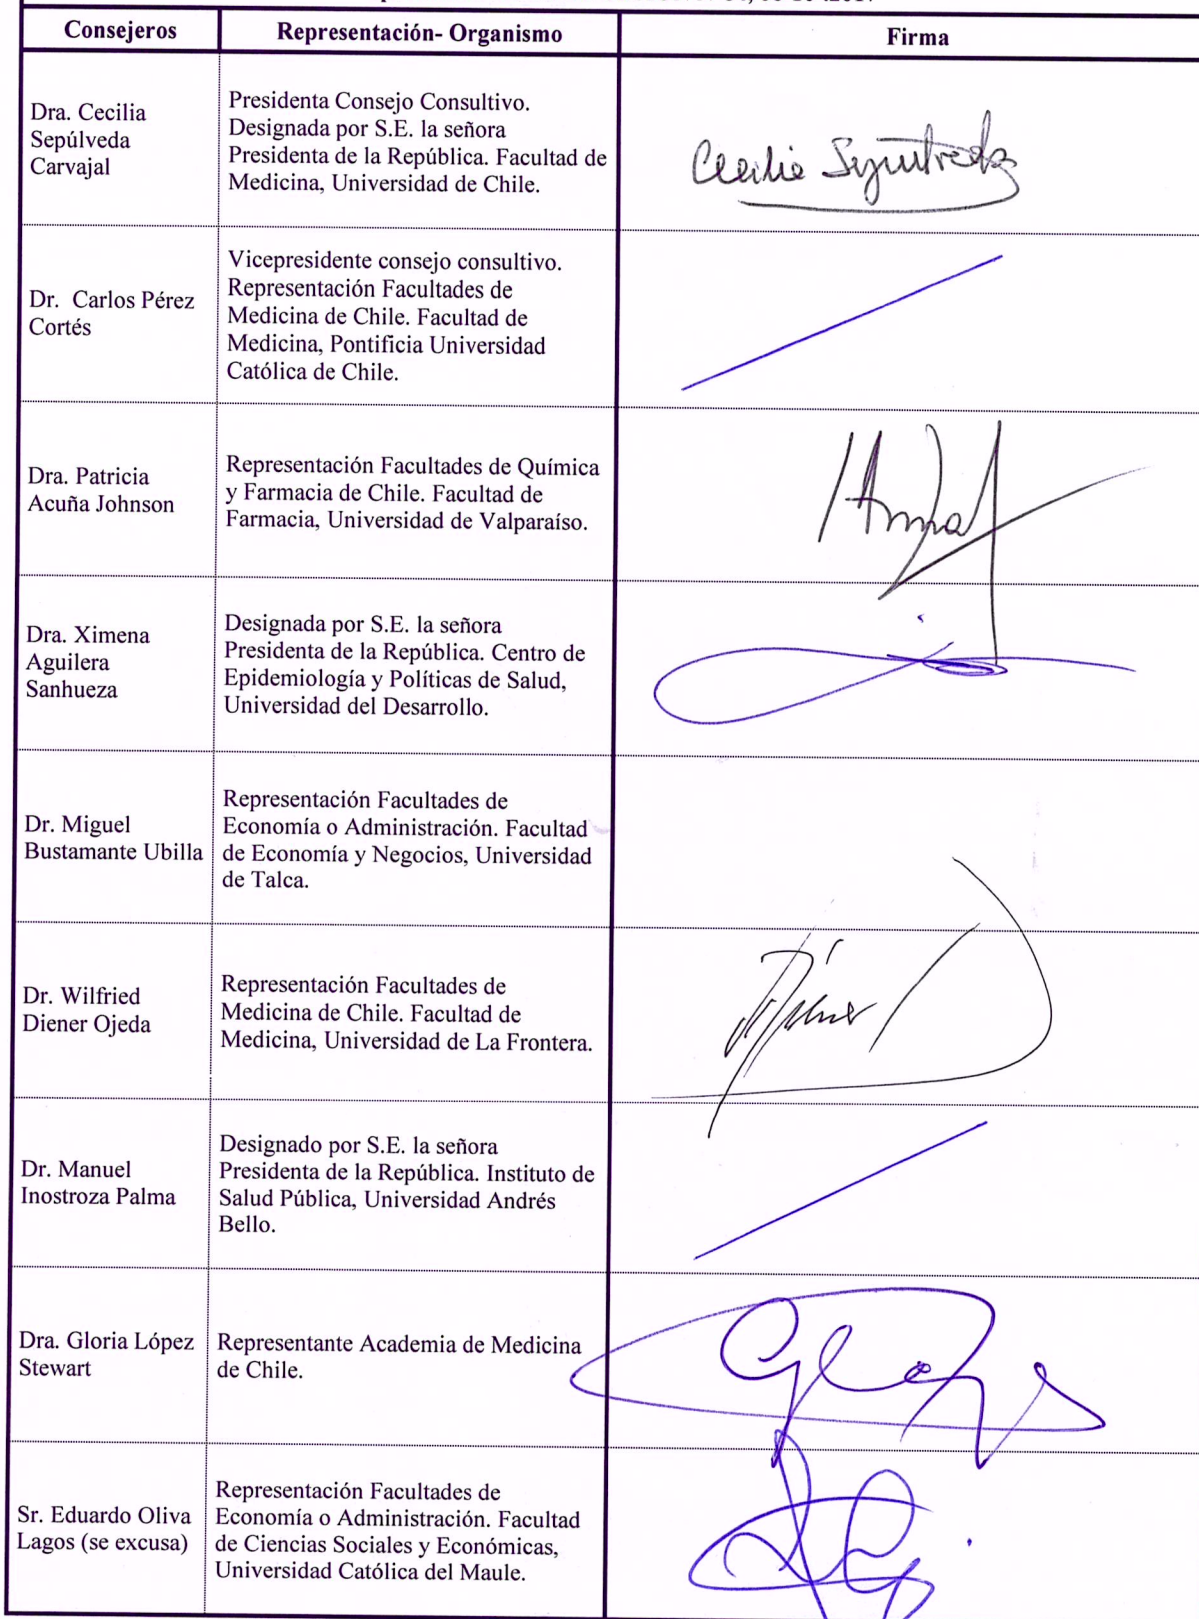 Consejeros
Representación- Organismo
Firma
Dra. Cecilia
Sepúlveda
Carvajal
Presidenta Consejo Consultivo.
Designada por S.E. la señora
Presidenta de la República. Facultad de
Medicina, Universidad de Chile.
Dr.  Carlos Pérez
Cortés
Vicepresidente consejo consultivo.
Representación Facultades de
Medicina de Chile. Facultad de
Medicina, Pontificia Universidad
Católica de Chile.
Dra. Patricia
Acuña Johnson
Representación Facultades de Química
y Farmacia de Chile. Facultad de
Farmacia, Universidad de Valparaíso.
Dra. Ximena
Aguilera
Sanhueza
Designada por S.E. la señora
Presidenta de la República. Centro de
Epidemiología y Políticas de Salud,
Universidad del Desarrollo.
Dr. Miguel
Bustamante Ubilla
Representación Facultades de
Economía o Administración. Facultad
de Economía y Negocios, Universidad
de Talca.
Dr. Wilfried
Diener Ojeda
Representación Facultades de
Medicina de Chile. Facultad de
Medicina, Universidad de La Frontera.
Dr. Manuel
Inostroza Palma
Designado por S.E. la señora
Presidenta de la República. Instituto de
Salud Pública, Universidad Andrés
Bello.
Dra. Gloria López
Stewart
Representante Academia de Medicina
de Chile.
Sr. Eduardo Oliva
Lagos (se excusa)
Representación Facultades de
Economía o Administración. Facultad
de Ciencias Sociales y Económicas,
Universidad Católica del Maule.